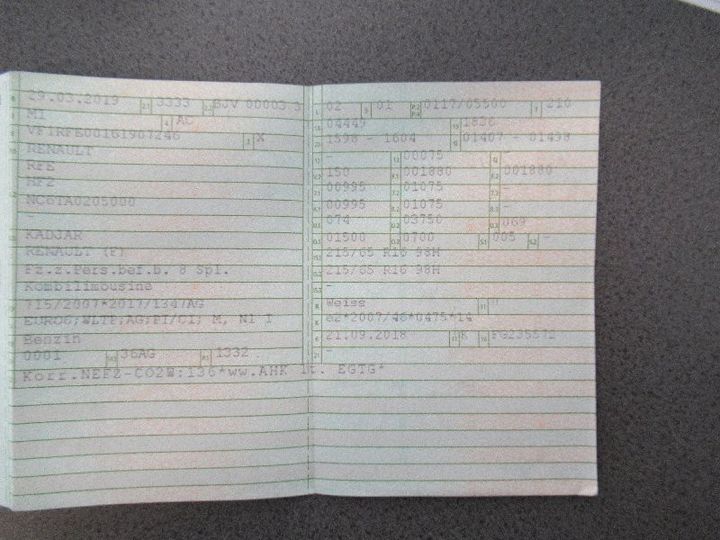 29.03.2019 3333 BJV 00003 3
M1 AC
VF1RFE00161907246 X
RENAULT
RFE
MF2
NC6TA0205000
-
KADJAR
RENAULT (F)
Fz.z.Pers.bef.b. 8 Spl.
Kombilimousine
715/2007*2017/1347AG
EURO6;WLTP;AG;PI/CI; M, N1 I
Benzin
0001 36AG 1332
Korr.NEFZ-CO2W:136*ww.AHK lt. EGTG*
02 01 0117/05500 210
04449 1836
1598 - 1604 01407 - 01439
- 00075 -
150 001880 001880
00995 01075 -
00995 01075 -
074 03750 069
01500 0700 005 -
215/65 R16 98H
215/65 R16 98H
-
Weiss
e2*2007/46*0475*14
21.09.2018 K
-